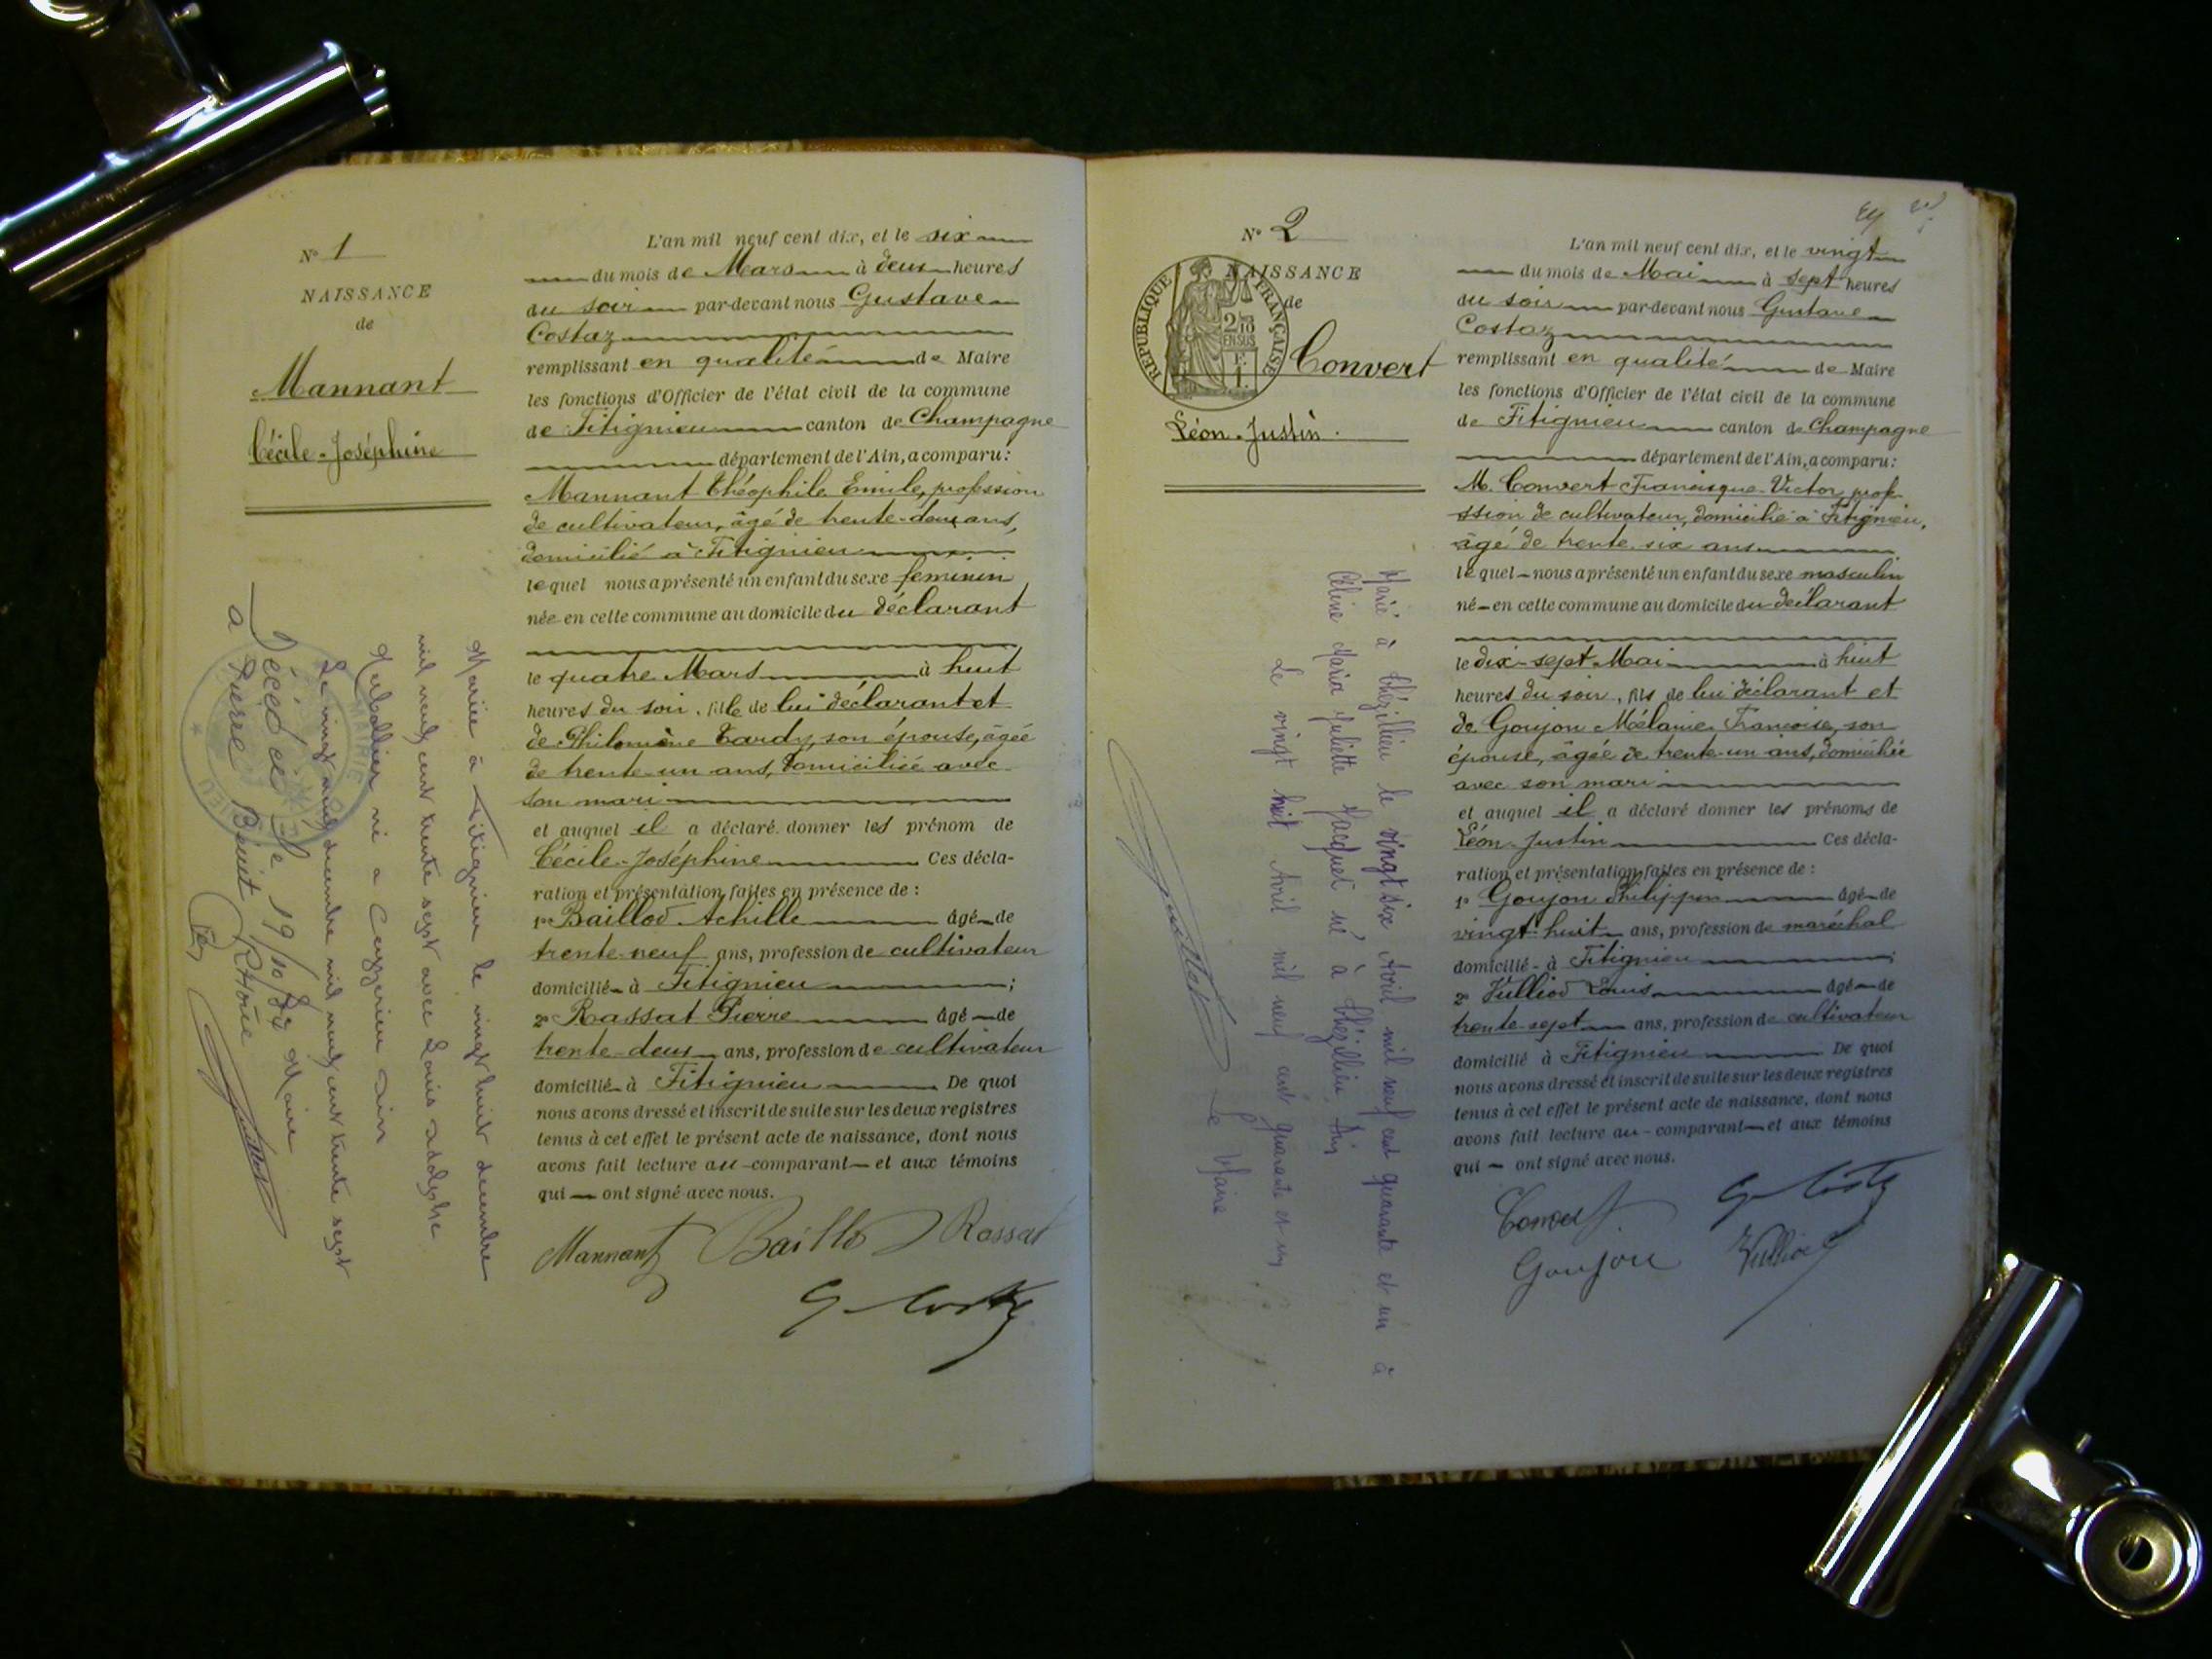 N° 1
NAISSANCE
de
Mannant
Cécile-Joséphine
L'an mil neuf cent dix, et le six
du mois de Mars à deux heures
du soir par-devant nous Gustave
Costaz
remplissant en qualité de Maire
les fonctions d'Officier de l'état civil de la commune
de Fitignieu canton de Champagne
département de l'Ain, a comparu :
Mannant Théophile Emile, profession
de cultivateur, âgé de trente-deux ans,
domicilié à Fitignieu
lequel nous a présenté un enfant du sexe feminin
née en cette commune au domicile du déclarant
le quatre Mars à huit
heures du soir, fille de lui déclarant et
de Philomène Tardy, son épouse, âgée
de trente-un ans, domiciliée avec
son mari
et auquel il a déclaré donner les prénom de
Cécile-Joséphine Ces décla-
ration et présentation faites en présence de :
1° Baillod Achille âgé de
trente-neuf ans, profession de cultivateur
domicilié à Fitignieu ;
2° Rassat Pierre âgé de
trente-deux ans, profession de cultivateur
domicilié à Fitignieu De quoi
nous avons dressé et inscrit de suite sur les deux registres
tenus à cet effet le présent acte de naissance, dont nous
avons fait lecture au comparant et aux témoins
qui ont signé avec nous.
Mannant Baillod Rassat
G. Costaz
Mariée à Fitignieu le vingt huit decembre
mil neuf cent trente sept avec Louis Adolphe
né a Cuzieu Ain
Le vingt neuf decembre mil neuf cent trente sept
Maire
Décédée le 19/10/
a Pierre Bénite Rhône
MAIRIE
N° 2
NAISSANCE
de
REPUBLIQUE FRANÇAISE
EN SUS
Convert
Léon-Justin
L'an mil neuf cent dix, et le vingt
du mois de Mai à sept heures
du soir par-devant nous Gustave
Costaz
remplissant en qualité de Maire
les fonctions d'Officier de l'état civil de la commune
de Fitignieu canton de Champagne
département de l'Ain, a comparu :
M. Convert Francisque-Victor, profe-
ssion de cultivateur, domicilié à Fitignieu,
âgé de trente-six ans
lequel nous a présenté un enfant du sexe masculin
né en cette commune au domicile du déclarant
le dix-sept Mai à huit
heures du soir, fils de lui déclarant et
de Goujon Mélanie Françoise, son
épouse, âgée de trente-un ans, domiciliée
avec son mari
et auquel il a déclaré donner les prénoms de
Léon-Justin Ces décla-
ration et présentation faites en présence de :
1° Goujon Philippin âgé de
vingt-huit ans, profession de maréchal
domicilié à Fitignieu ;
2° Vulliod Louis âgé de
trente-sept ans, profession de cultivateur
domicilié à Fitignieu De quoi
nous avons dressé et inscrit de suite sur les deux registres
tenus à cet effet le présent acte de naissance, dont nous
avons fait lecture au comparant et aux témoins
qui ont signé avec nous.
Convert G. Costaz
Goujon Vulliod
Marié à Thézillieu le vingt six Avril mil neuf cent quarante et un à
Céline Maria Juliette Jacquet né à Thézillieu Ain
Le vingt huit Avril mil neuf cent quarante et un
Le Maire